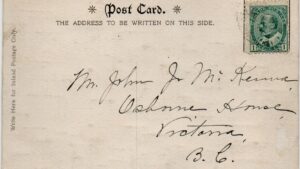 * Post Card. *
THE ADDRESS TO BE WRITTEN ON THIS SIDE.
Write Here for Inland Postage Only.
Mr. John J. McKenna,
Osborne House,
Victoria,
B. C.